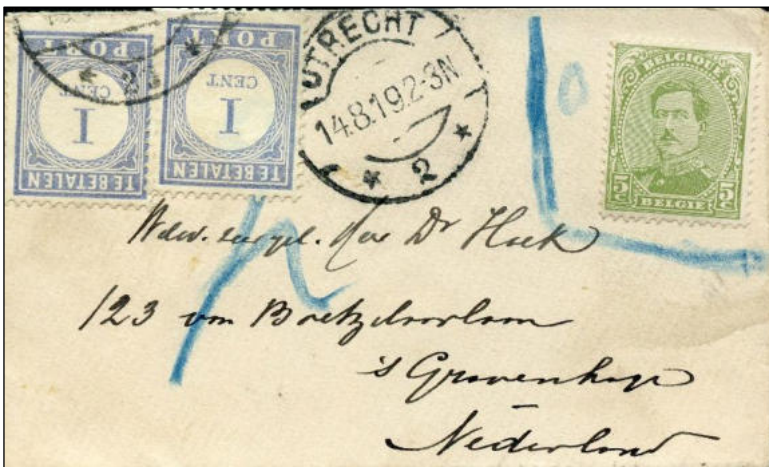 TE BETALEN
1
CENT
PORT
TE BETALEN
1
CENT
PORT
UTRECHT
14.8.19.2-3N
2
BELGIQUE
5c 5c
BELGIË
Dr Hoek
123 van Boetzelaerlaan
's Gravenhage
Nederland